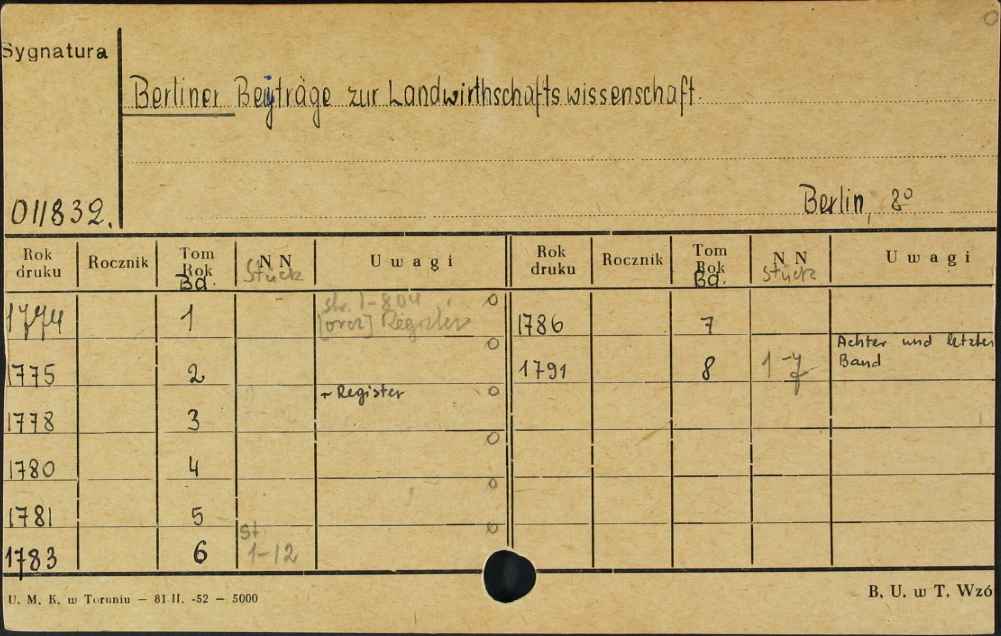 Sygnatura
Berliner Beyträge zur Landwirthschaftswissenschaft.
011832.
Berlin, 8°
Rok druku Rocznik Tom Rok Bd. NN Stück Uwagi Rok druku Rocznik Tom Rok Bd. NN Stück Uwagi
1774 1 str. 1-804 [oraz] Register
1786 7
1775 2
1791 8 1-7 Achter und letzter Band
1778 3 ~ Register
1780 4
1781 5
1783 6 St. 1-12
U. M. K. w Toruniu — 81 II. -52 — 5000
B. U. w T. Wzó